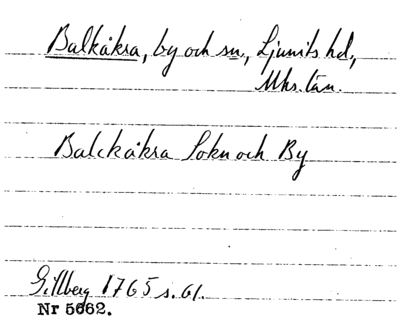 Balkåkra, by och sn, Ljunits hd,
Mhs. län.
Balckåkra Sokn och By
Gillberg 1765 s. 61.
Nr 5662.